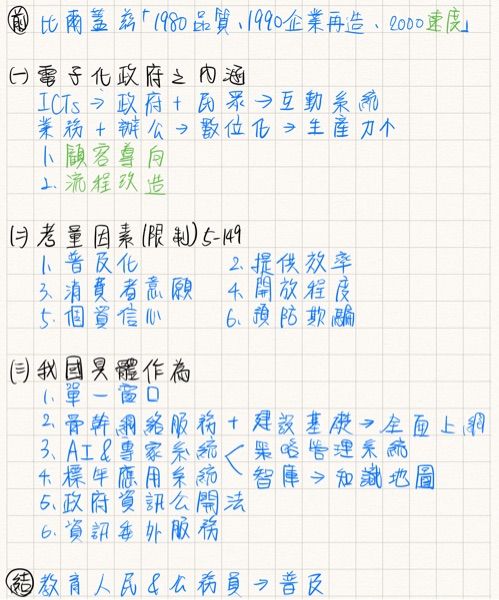 前 比爾蓋茲「1980品質、1990企業再造、2000速度」
(一)電子化政府之內涵
ICTs→政府+民眾→互動系統
業務+辦公→數位化→生產力↑
1. 顧客導向
2. 流程改造
(二)考量因素(限制)5-149
1. 普及化 2. 提供效率
3. 消費者意願 4. 開放程度
5. 個資信心 6. 預防欺騙
(三)我國具體作為
1. 單一窗口
2. 骨幹網絡服務+建設基礎→全面上網
3. AI&專家系統<策略管理系統
4. 標竿應用系統 智庫→知識地圖
5. 政府資訊公開法
6. 資訊委外服務
結 教育人民&公務員→普及